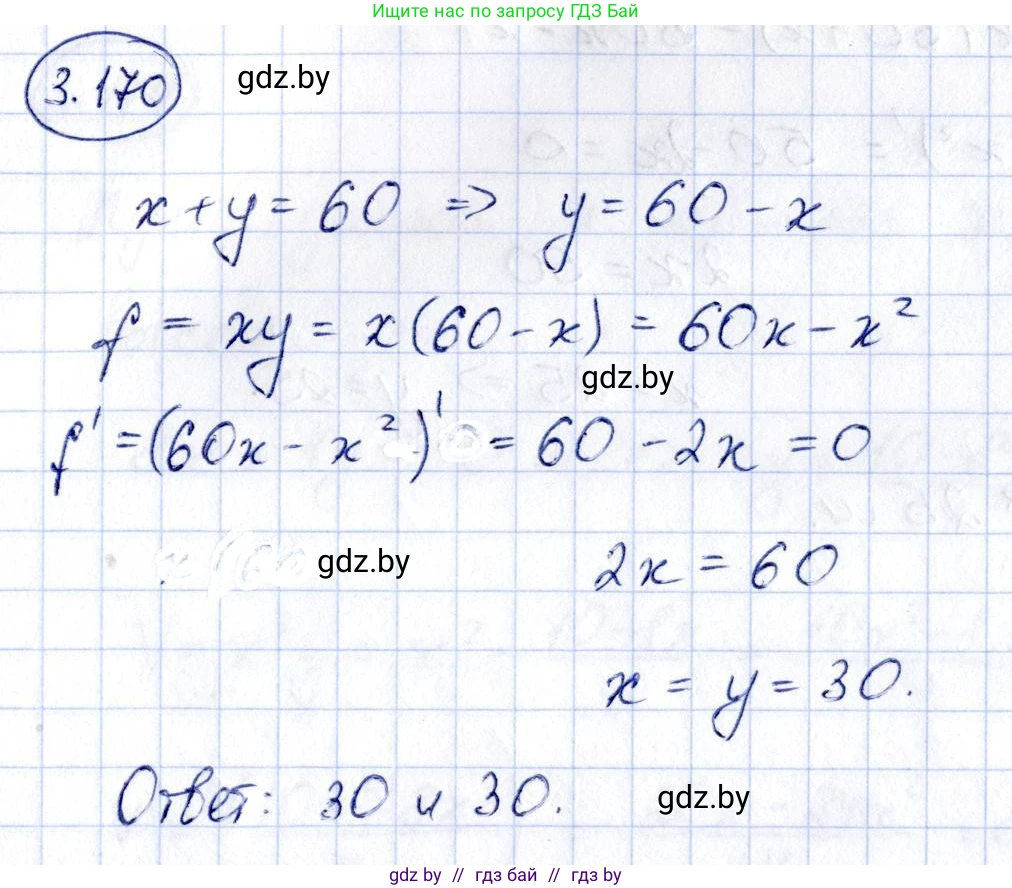 Ищите нас по запросу ГДЗ Бай
3.170
gdz.by
x + y = 60 => y = 60 - x
f = xy = x(60 - x) = 60x - x²
gdz.by
f' = (60x - x²)' = 60 - 2x = 0
gdz.by
2x = 60
x = y = 30.
Ответ: 30 и 30.
gdz.by
gdz by // гдз бай // gdz by